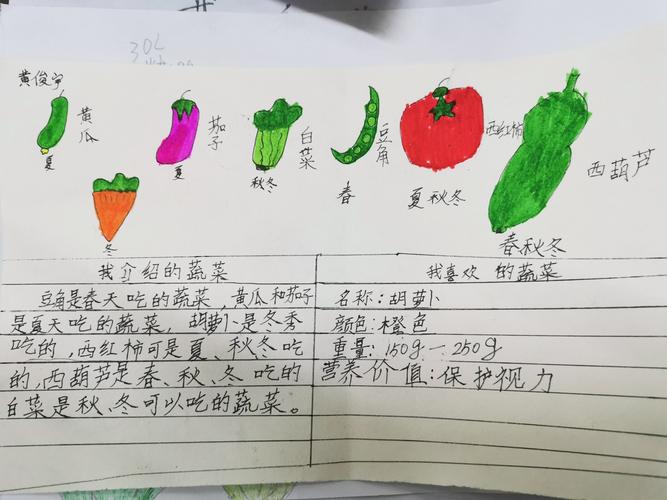 30L
黄俊宇
黄瓜
夏
茄子
夏
白菜
秋冬
豆角
春
西红柿
夏秋冬
西葫芦
春秋冬
冬
我介绍的蔬菜
豆角是春天吃的蔬菜,黄瓜和茄子
是夏天吃的蔬菜,胡萝卜是冬季
吃的,西红柿可是夏、秋冬吃
的,西葫芦是春、秋、冬吃的
白菜是秋、冬可以吃的蔬菜。
我喜欢的蔬菜
名称:胡萝卜
颜色:橙色
重量:150g—250g
营养价值:保护视力